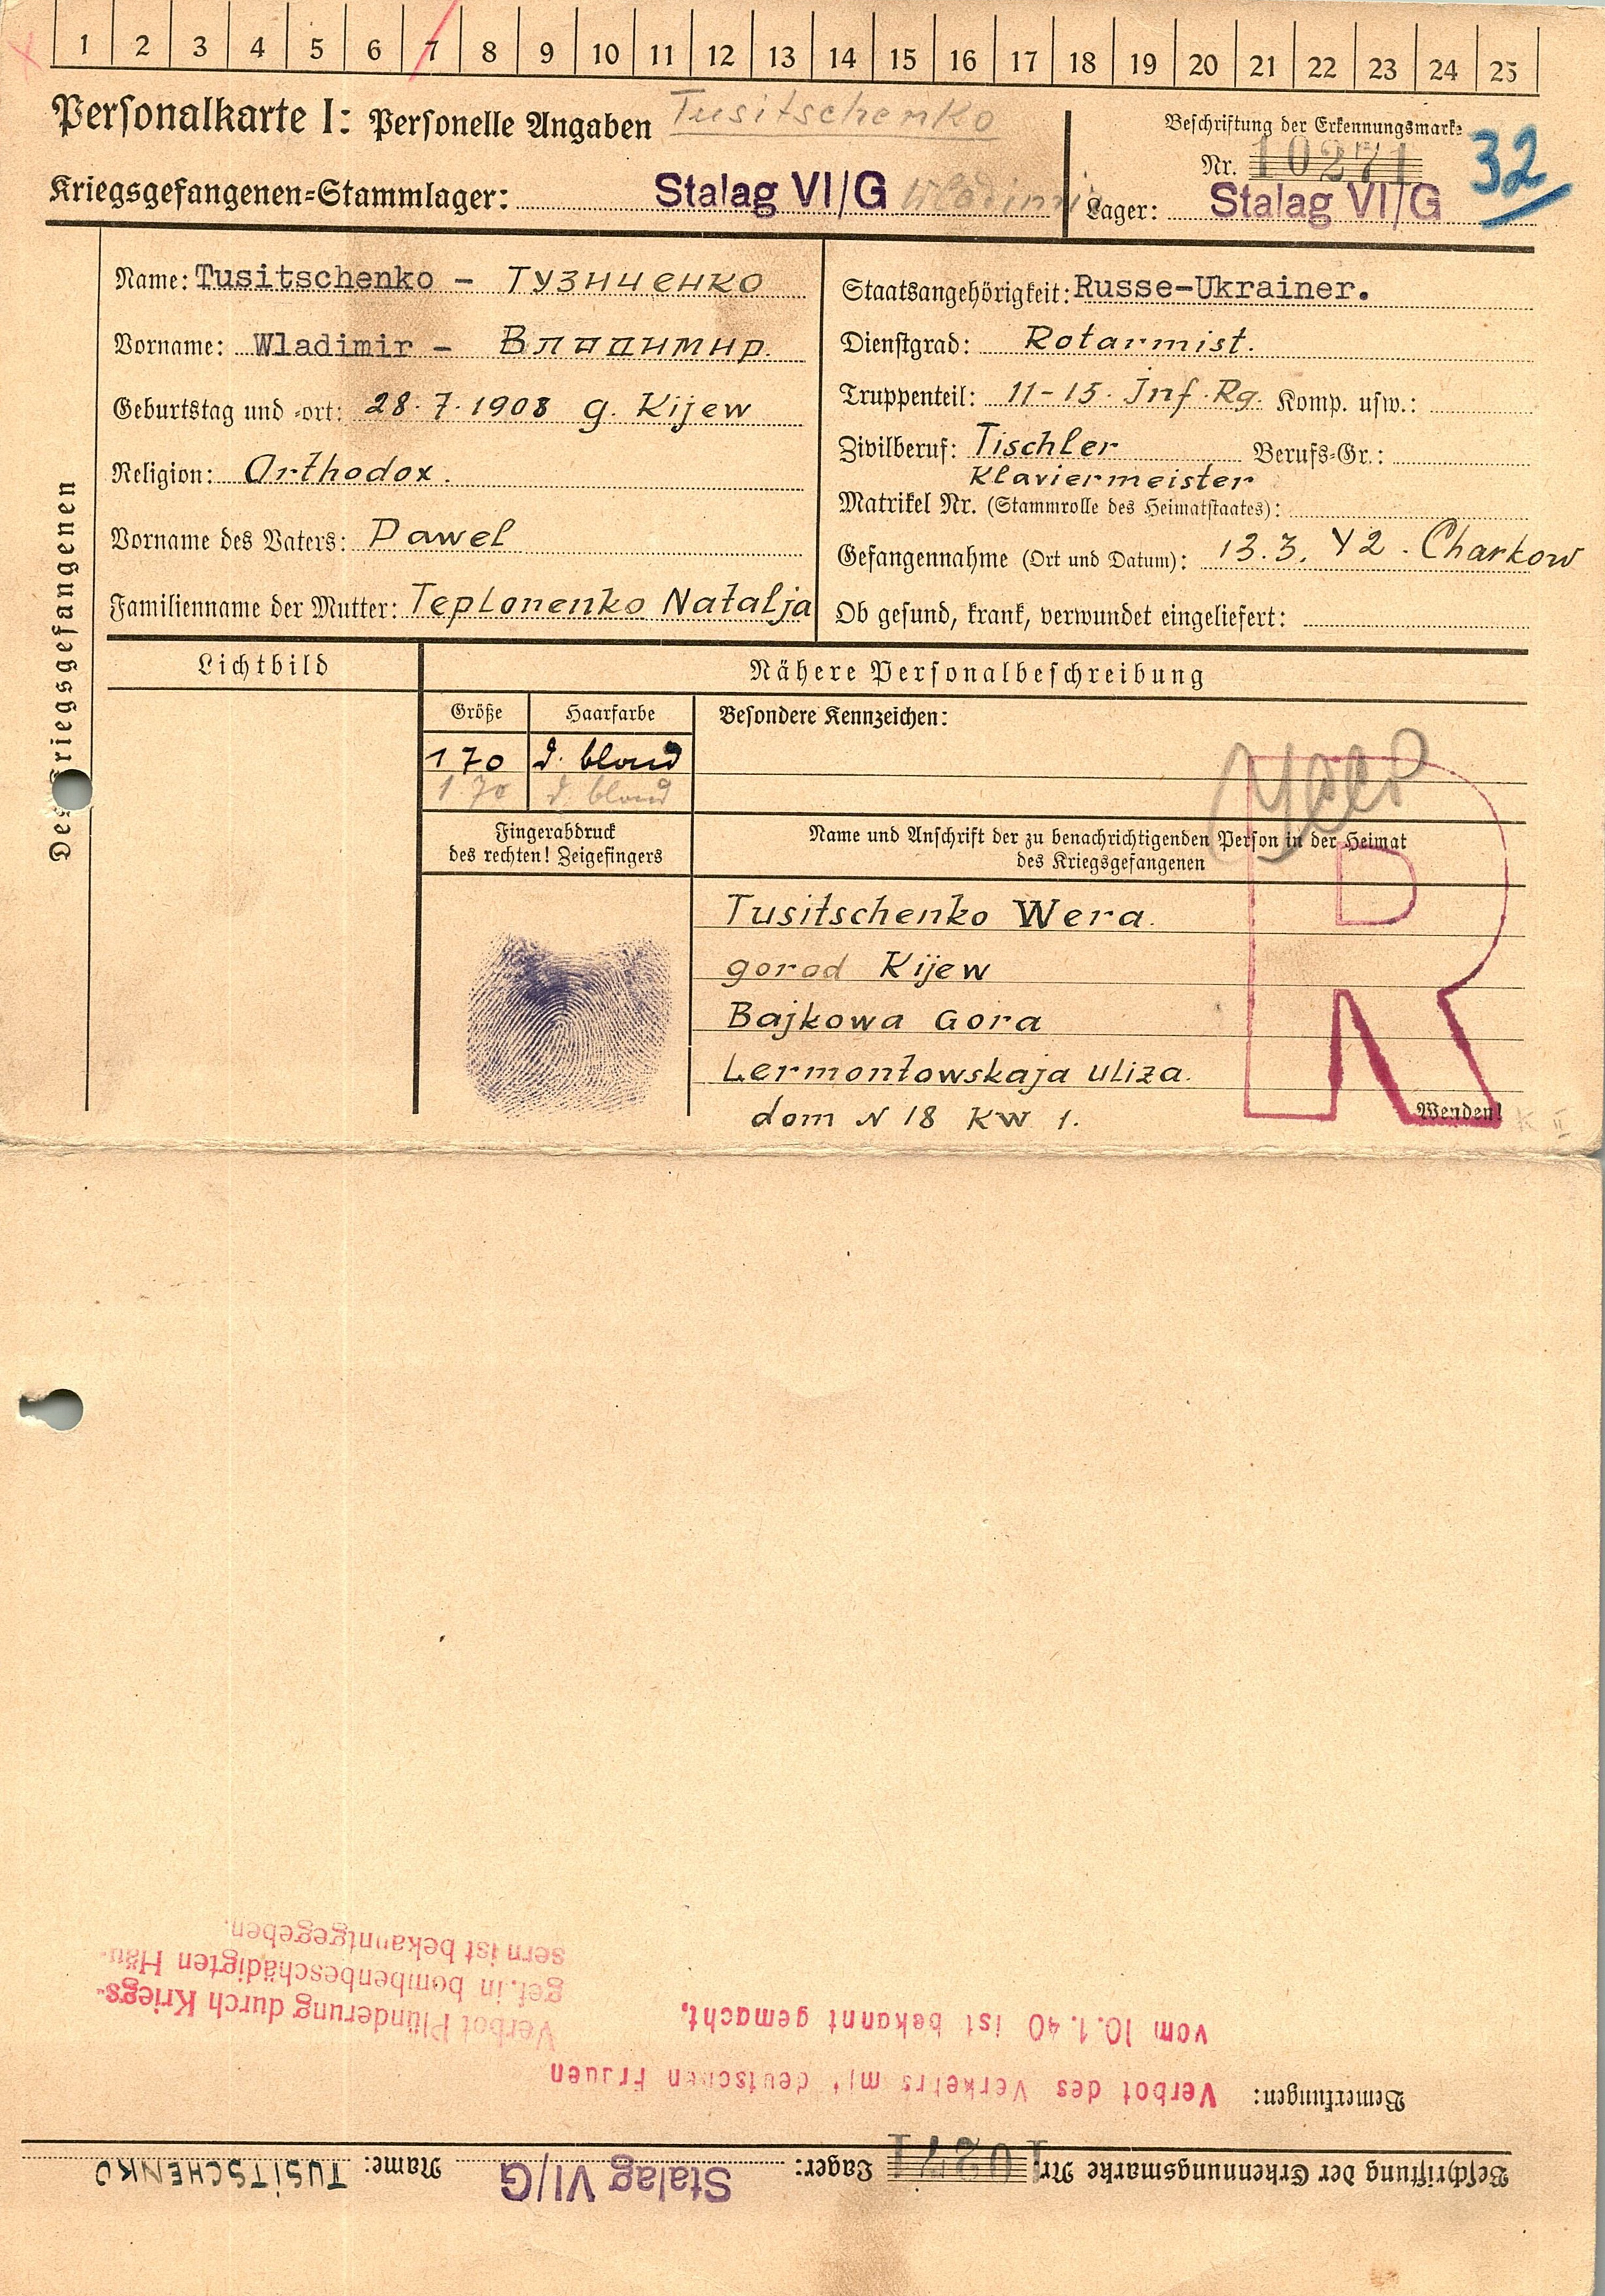 1 2 3 4 5 6 7 8 9 10 11 12 13 14 15 16 17 18 19 20 21 22 23 24 25
Personalkarte I: Personelle Angaben Tusitschenko
Beschriftung der Erkennungsmarke
Nr. 10271 32
Kriegsgefangenen=Stammlager: Stalag VI/G Wladimir
Lager: Stalag VI/G
Des Kriegsgefangenen
Name: Tusitschenko - Тузиченко
Vorname: Wladimir - Владимир.
Geburtstag und =ort: 28.7.1908 g. Kijew
Religion: Orthodox.
Vorname des Vaters: Pawel
Familienname der Mutter: Teplonenko Natalja
Staatsangehörigkeit: Russe-Ukrainer.
Dienstgrad: Rotarmist.
Truppenteil: 11-15. Inf. Rg. Komp. usw.:
Zivilberuf: Tischler Berufs=Gr.:
Klaviermeister
Matrikel Nr. (Stammrolle des Heimatstaates):
Gefangennahme (Ort und Datum): 13.3.42. Charkow
Ob gesund, krank, verwundet eingeliefert:
Lichtbild
Nähere Personalbeschreibung
Größe Haarfarbe
Besondere Kennzeichen:
170 d. blond
170 d. blond
Fingerabdruck
des rechten! Zeigefingers
Name und Anschrift der zu benachrichtigenden Person in der Heimat
des Kriegsgefangenen
R
Tusitschenko Wera.
gorod Kijew
Bajkowa Gora
Lermontowskaja uliza.
dom N 18 KW 1.
Wenden!
K II
Beschriftung der Erkennungsmarke Nr. 10271 Lager: Stalag VI/G Name: TUSITSCHENKO
Bemerkungen: Verbot des Verkehrs mit deutschen Frauen
vom 10.1.40 ist bekannt gemacht.
Verbot Plünderung durch Kriegs-
gef. in bombenbeschädigten Häu-
sern ist bekanntgegeben.